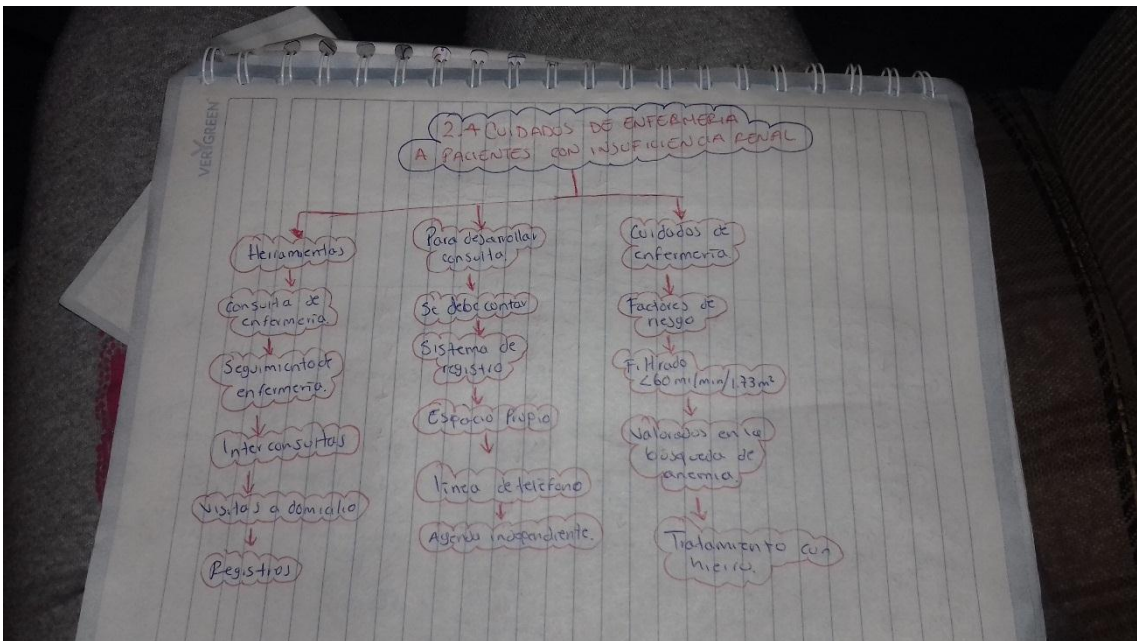 VERYGREEN
2.4 CUIDADOS DE ENFERMERIA
A PACIENTES CON INSUFICIENCIA RENAL
Herramientas
Consulta de
enfermería.
Seguimiento de
enfermería.
Interconsultas
Visitas a domicilio
Registros
Para desarrollar
consulta.
Se debe contar
Sistema de
registro
Espacio Propio
línea de teléfono
Agenda independiente.
Cuidados de
enfermería
Factores de
riesgo
Filtrado
<60 ml/min/1.73m²
Valorados en la
búsqueda de
anemia.
Tratamiento con
hierro.